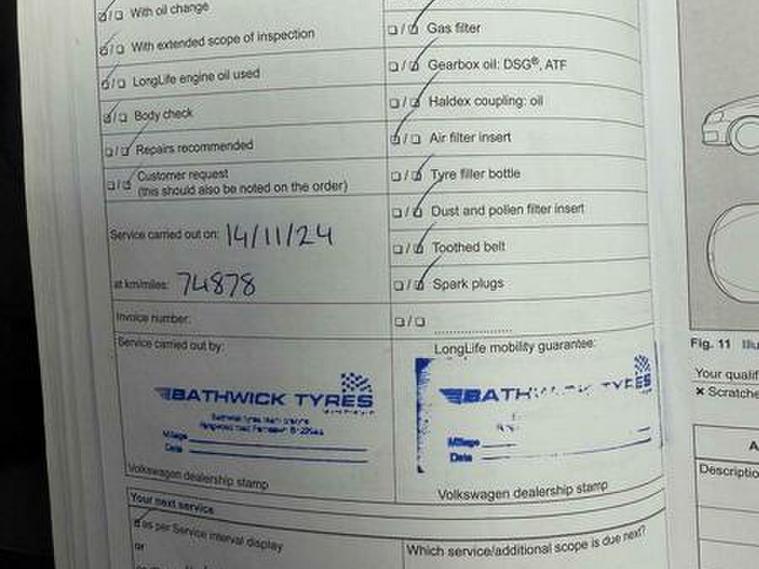 With oil change
With extended scope of inspection
LongLife engine oil used
Body check
Repairs recommended
Customer request
(this should also be noted on the order)
Service carried out on: 14/11/24
at km/miles: 74878
Invoice number:
Service carried out by:
BATHWICK TYRES
Mileage
Date
Volkswagen dealership stamp
Your next service
as per Service interval display
or
Gas filter
Gearbox oil: DSG®, ATF
Haldex coupling: oil
Air filter insert
Tyre filler bottle
Dust and pollen filter insert
Toothed belt
Spark plugs
LongLife mobility guarantee:
BATHWICK TYRES
Mileage
Date
Volkswagen dealership stamp
Which service/additional scope is due next?
Fig. 11 Illu
Your qualif
× Scratche
A
Descriptio